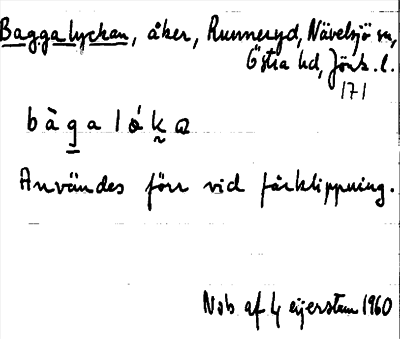 Baggalyckan, åker, Runneryd, Nävelsjö sn,
Östra hd, Jönk. l.
171
Användes förr vid fårklippning.
Nob af 1960